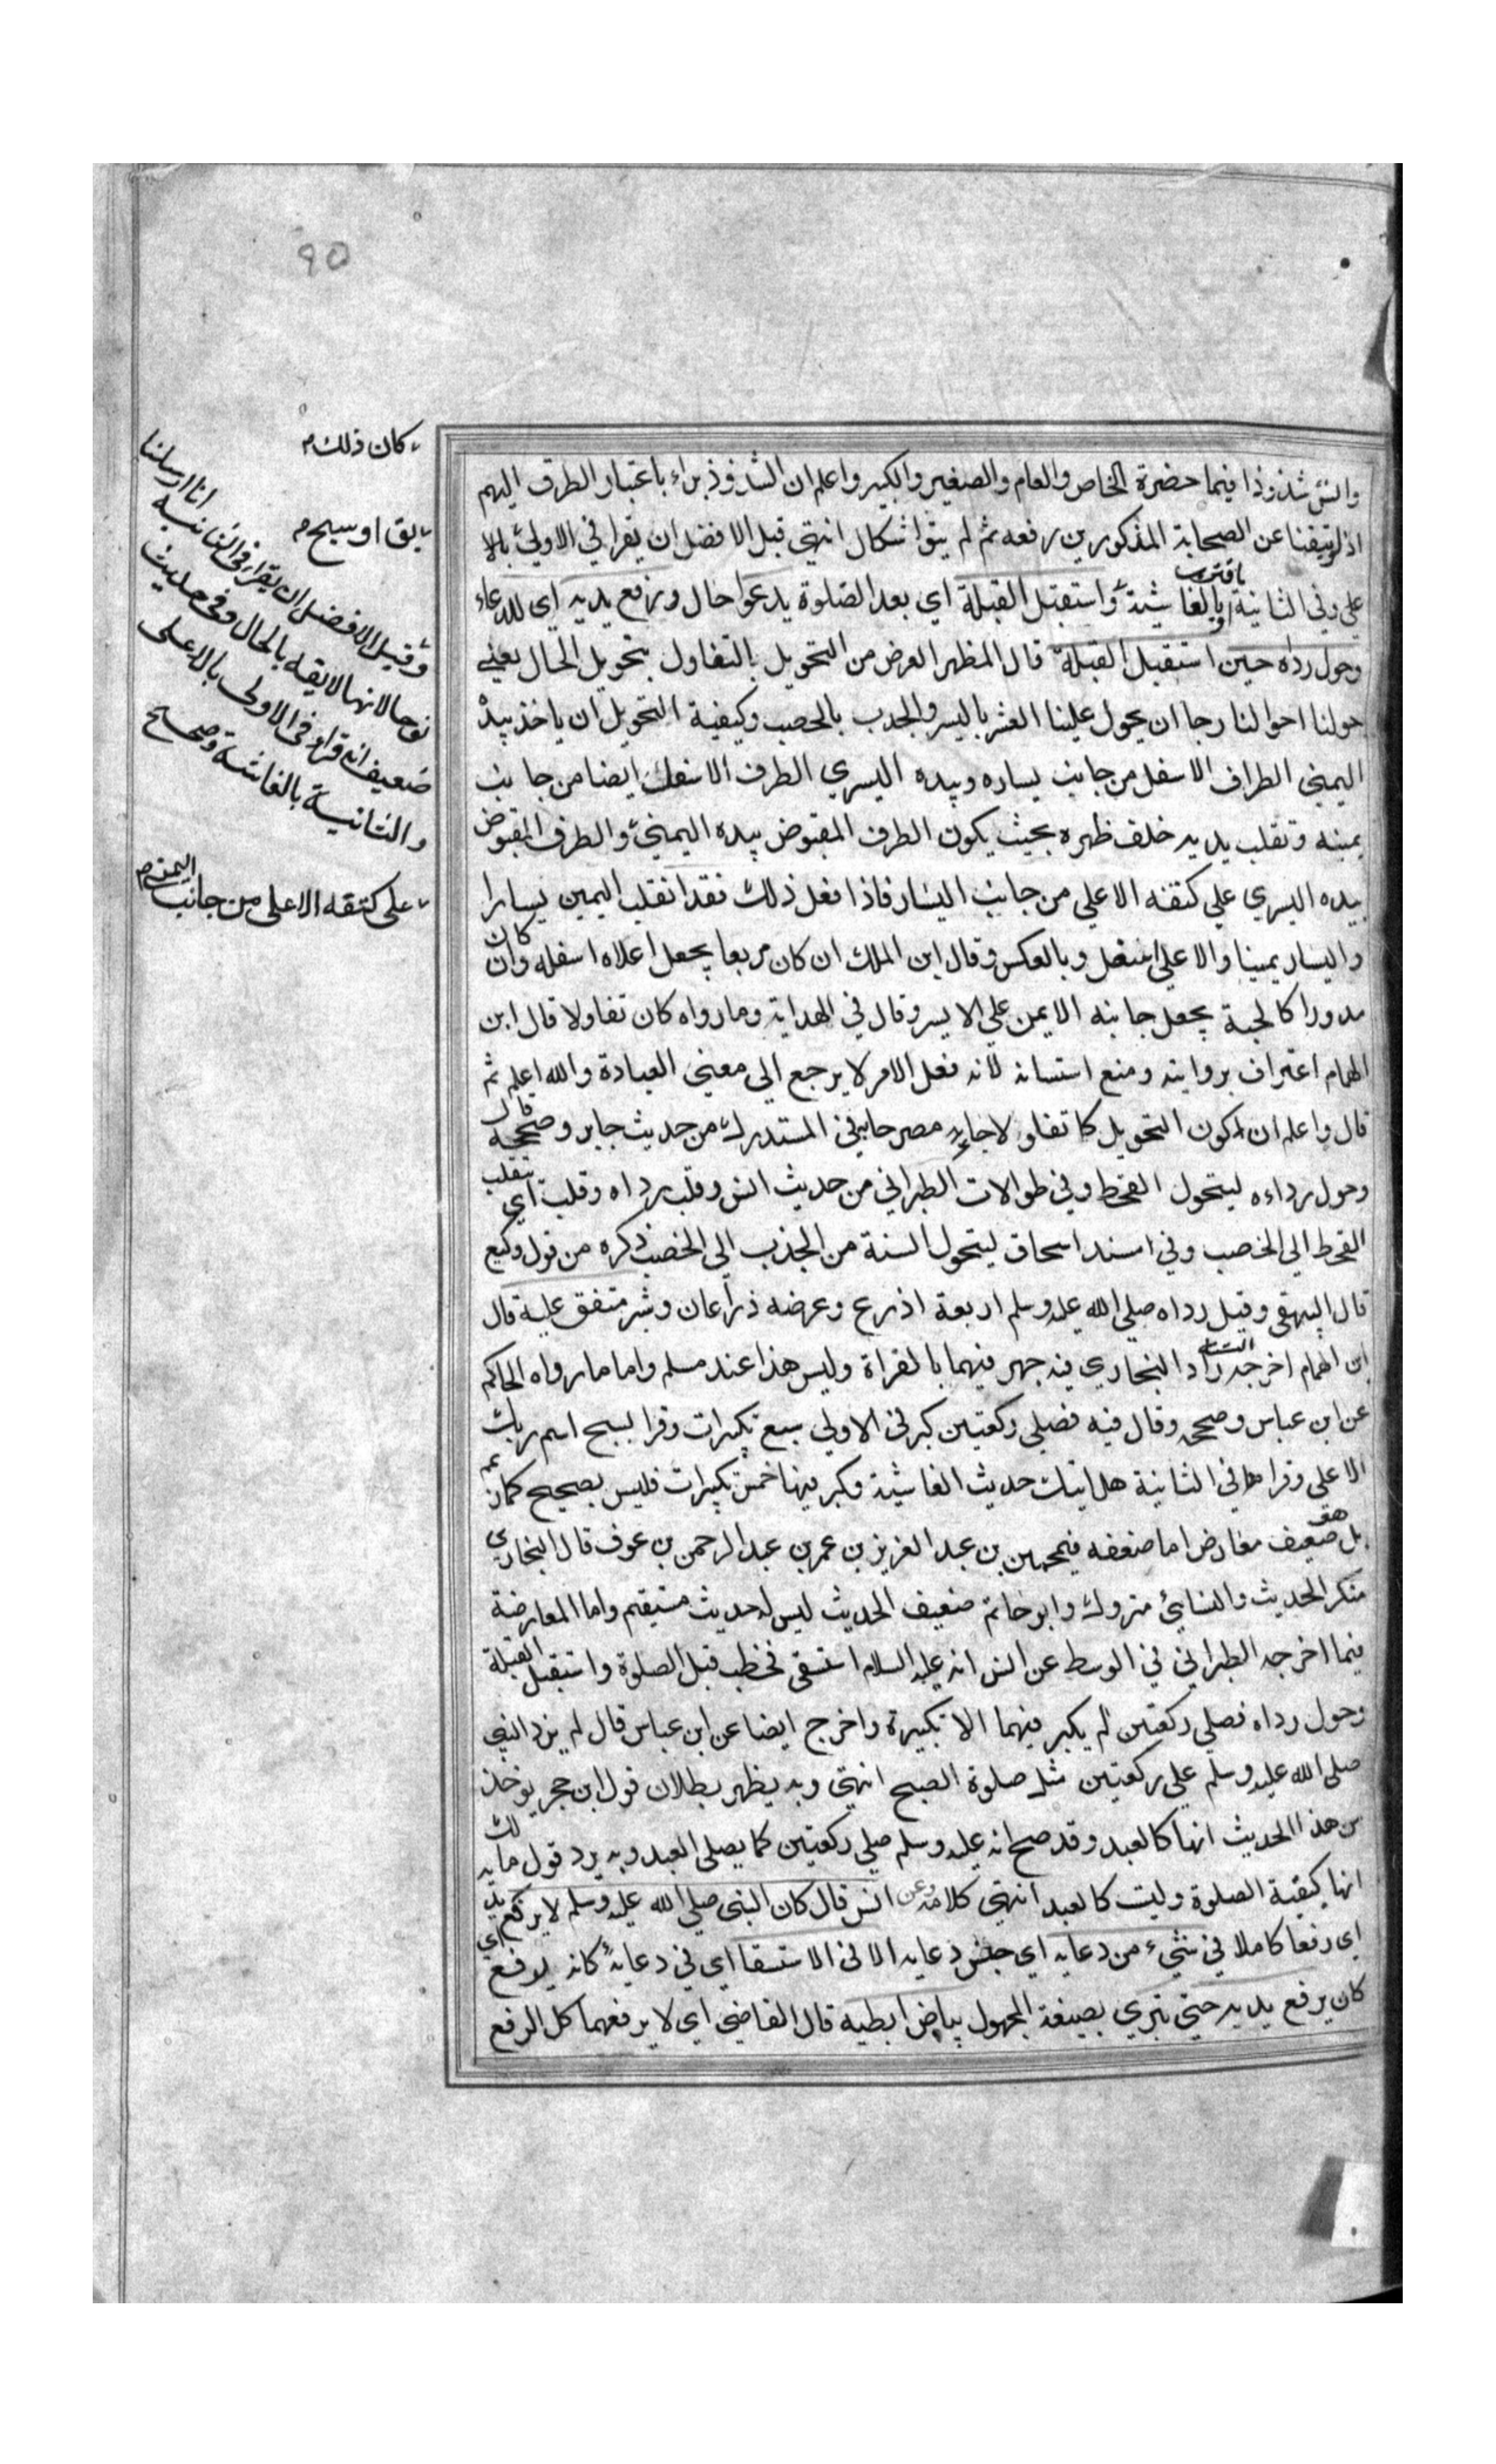 ٩٥
والسن شذوذا فيما حضرة الخاص والعام والصغير والكبير واعلم ان الشذوذ براء باعتبار الطرق اليهم
اذ لو تيقنا عن الصحابة المذكورين رفعه ثم لم يبق اشكال انتهى قيل الافضل ان يقرا في الاولى بالا
على وفي الثانية بالغاشية واستقبل القبلة اي بعد الصلوة يدعوا حال ورفع يديه اي للدعاء
وحول رداه حين استقبل القبلة قال المظهر الغرض من التحويل بالتفاول بتحويل الحال يعني
حولنا احوالنا رجا ان يحول علينا العسر باليسر والجدب بالخصب وكيفية التحويل ان ياخذ بيده
اليمنى الطراف الاسفل من جانب يساره وبيده اليسري الطرف الاسفل ايضا من جانب
يمينه وتقلب يديه خلف ظهره بحيث يكون الطرف المقبوض بيده اليمنى والطرف المقبوض
بيده اليسري على كتفه الاعلى من جانب اليسار فاذا فعل ذلك فقد انقلب اليمين يسارا
واليسار يمينا والاعلى اسفل وبالعكس وقال ابن الملك ان كان مربعا يجعل اعلاه اسفله وان كان
مدورا كالجبة يجعل جانبه الايمن على الايسر وقال في الهداية وما رواه كان تفاولا قال ابن
الهمام اعتراف بروايته ومنع استسانه لانه فعل الامر لا يرجع الى معنى العبادة والله اعلم ثم
قال واعلم ان كون التحويل كا تفاولا جاء مصرحا به في المستدرك من حديث جابر وصححه قال
وحول رداءه ليتحول القحط وفي طوالات الطبراني من حديث انس وقلب رداه وقلب اي تنقلب
القحط الى الخصب وفي مسند اسحاق ليتحول السنة من الجذب الى الخصب ذكره من قول وكيع
قال البيهقي وقيل رداه صلى الله عليه وسلم اربعة اذرع وعرضه ذراعان وشبر متفق عليه قال
ابن الهمام اخرجه الستة زاد البخاري فيه جهر فيهما بالقراة وليس هذا عند مسلم واما ما رواه الحاكم
عن ابن عباس وصححه وقال فيه فصلى ركعتين كبر في الاولى سبع تكبيرات وقرا بسبح اسم ربك
الاعلى وقرا في الثانية هل اتيك حديث الغاشية وكبر فيها خمس تكبيرات فليس بصحيح كما زعم
بل هو ضعيف معارض اما ضعفه فبمحمد بن عبد العزيز بن عمر بن عبد الرحمن بن عوف قال البخاري
منكر الحديث والنسائي متروك وابو حاتم ضعيف الحديث ليس له حديث مستقيم واما المعارضة
فيما اخرجه الطبراني في الوسط عن انس انه عليه السلام استسقى فخطب قبل الصلوة واستقبل القبلة
وحول رداه فصلى ركعتين لم يكبر فيهما الا تكبيرة واخرج ايضا عن ابن عباس قال لم يزد النبي
صلى الله عليه وسلم على ركعتين مثل صلوة الصبح انتهى وبه يظهر بطلان قول ابن حجر يوخذ
من هذا الحديث انها كالعيد وقد صح انه عليه وسلم صلى ركعتين كما يصلي العيد وبه يرد قول مالك
انها كبقية الصلوة وليت كالعيد انتهى كلامه وعن انس قال كان النبي صلى الله عليه وسلم لا يرفع يديه
اي رفعا كاملا في شيء من دعايه اي جنس دعايه الا في الاستسقا اي في دعايه كانه يرفع اي
كان يرفع يديه حتى تري بصيغة المجهول بياض ابطيه قال القاضي اي لا يرفعهما كل الرفع
كان ذلك
بق او سبح
وقيل الافضل ان يقرا في الثانية انا ارسلنا
نوحا لانها لايقه بالحال وفي حديث
ضعيف انه قراء في الاولى بالاعلى
والثانية بالغاشية وصح
على كتفه الاعلى من جانب اليمين